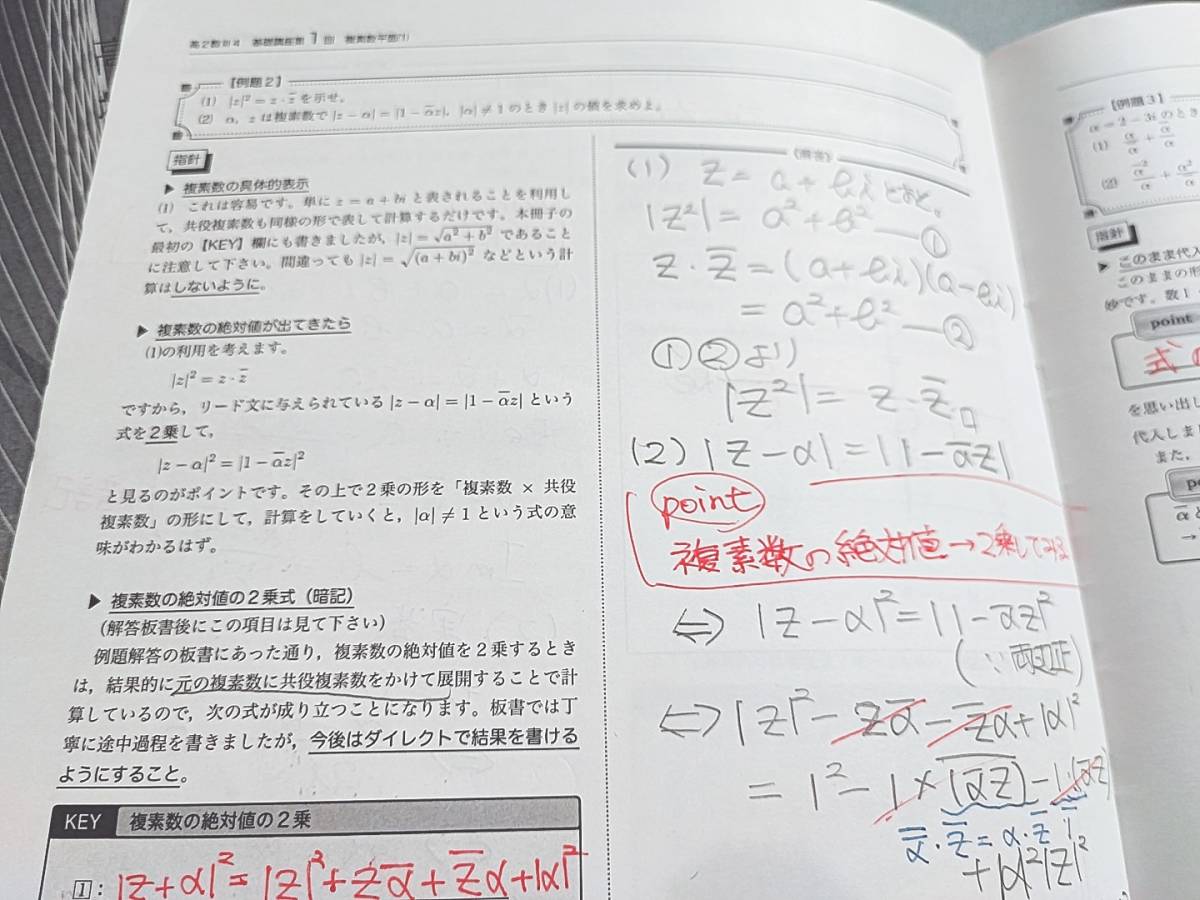 高2数III4 基礎講座第1回 複素数平面(1)
【例題2】
(1) |z|² = z・z̅ を示せ。
(2) α, z は複素数で |z − α| = |1 − α̅z|, |α| ≠ 1 のとき |z| の値を求めよ。
指針
▶ 複素数の具体的表示
(1) これは容易です。単に z = a + bi と表されることを利用し
て，共役複素数も同様の形で表して計算するだけです。本冊子の
最初の【KEY】欄にも書きましたが，|z| = √(a² + b²) であること
に注意して下さい。間違っても |z| = √((a + bi)²) などという計
算はしないように。
▶ 複素数の絶対値が出てきたら
(1)の利用を考えます。
|z|² = z・z̅
ですから，リード文に与えられている |z − α| = |1 − α̅z| という
式を2乗して，
|z − α|² = |1 − α̅z|²
と見るのがポイントです。その上で2乗の形を「複素数 × 共役
複素数」の形にして，計算をしていくと，|α| ≠ 1 という式の意
味がわかるはず。
▶ 複素数の絶対値の2乗式（暗記）
（解答板書後にこの項目は見て下さい）
例題解答の板書にあった通り，複素数の絶対値を2乗するとき
は，結果的に元の複素数に共役複素数をかけて展開することで計
算しているので，次の式が成り立つことになります。板書では丁
寧に途中過程を書きましたが，今後はダイレクトで結果を書ける
ようにすること。
KEY 複素数の絶対値の2乗
1: |z+α|² = |z|² + zα̅ + z̅α + |α|²
(1) z = a + bi とおく。
|z²| = a² + b² ―①
z・z̅ = (a+bi)(a−bi)
= a² + b² ―②
①②より
|z²| = z・z̅ □
(2) |z − α| = |1 − α̅z|
point
複素数の絶対値→2乗してみる
⇔ |z − α|² = |1 − α̅z|²
(∵両辺正)
⇔ |z|² − zα̅ − z̅α + |α|²
= 1² − 1×(α̅z)‾ − 1・(α̅z)
α̿・z̅ = α・z̅
+ |α|²|z|²
【例題3】
α = 2 − 3i のとき
(1)
(2)
指針
▶ このまま代入
このままの形
妙です。数I・
point
式の
を思い出し
代入しまし
また，
α̅ と
→